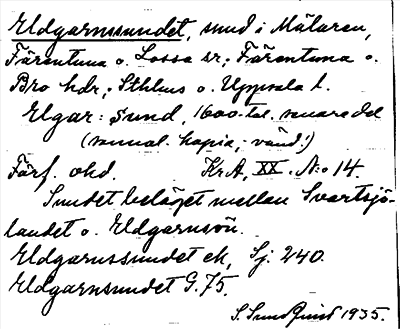 Eldgarnssundet, sund i Mälaren,
Färentuna o. Lossa sr; Färentuna o.
Bro hdr; Sthlms o. Uppsala l.
Elgar: Sund, 1600-tal. senare del
(samml. kopia; vänd!)
Förf. okd. KrA, XX. N:o 14.
Sundet beläget mellan Svartsjö-
landet o. Eldgarnsön.
Eldgarnssundet ek, Sj. 240.
Eldgarnsundet G. 75.
S. Sundquist 1935.